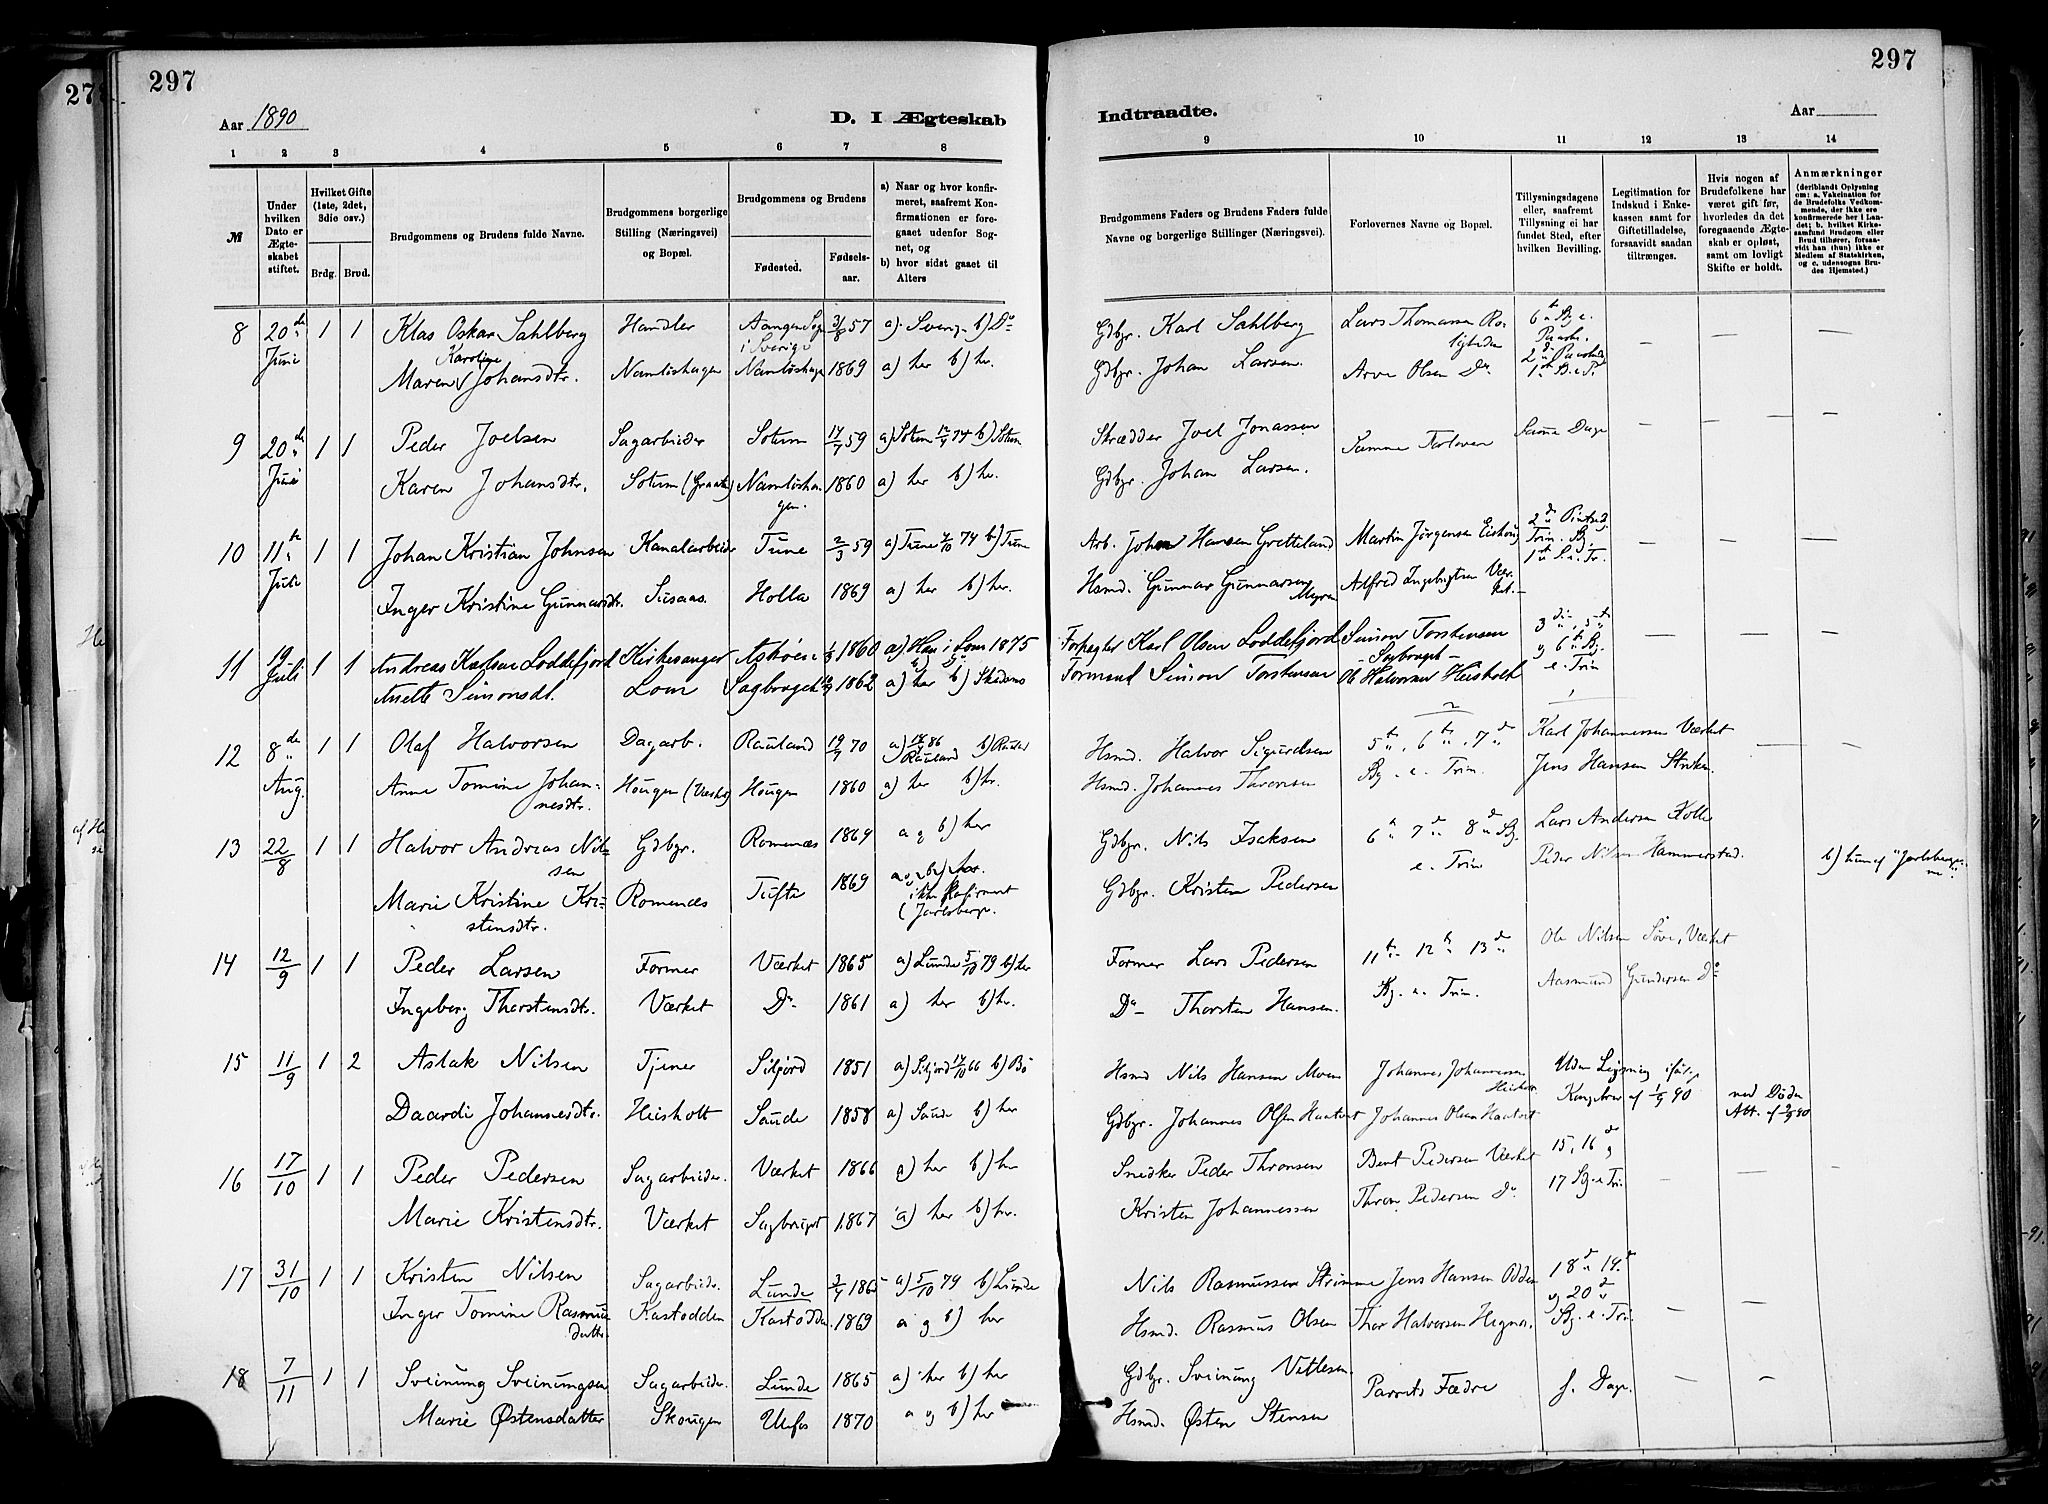 297
297
Aar 1890
D. I Ægteskab
Indtraadte.
Aar
1 2 3 4 5 6 7 8 9 10 11 12 13 14
№
Under hvilken Dato er Ægteskabet stiftet.
Hvilket Gifte (1ste, 2det, 3die osv.)
Brdg. Brud.
Brudgommens og Brudens fulde Navne.
Brudgommens borgerlige Stilling (Næringsvei) og Bopæl.
Brudgommens og Brudens
Fødested. Fødselsaar.
a) Naar og hvor konfirmeret, saafremt Konfirmationen er foregaaet udenfor Sognet, og
b) hvor sidst gaaet til Alters
Brudgommens Faders og Brudens Faders fulde Navne og borgerlige Stillinger (Næringsvei).
Forlovernes Navne og Bopæl.
Tillysningsdagene eller, saafremt Tillysning ei har fundet Sted, efter hvilken Bevilling.
Legitimation for Indskud i Enkekassen samt for Giftetilladelse, forsaavidt saadan tiltrænges.
Hvis nogen af Brudefolkene har været gift før, hvorledes da det foregaaende Ægteskab er opløst, samt om lovligt Skifte er holdt.
Anmærkninger
(deriblandt Oplysning om: a. Vakcination for de Brudefolks Vedkommende, der ikke ere konfirmerede her i Landet; b. hvilket Kirkesamfund Brudgom eller Brud tilhører, forsaavidt han (hun) ikke er Medlem af Statskirken, og c. udensogns Brudes Hjemsted.)
8 20de Juni 1 1 Klas Oskar Sahlberg Handler i Sverige 31/8 57 a) Sverig b) Do Gdbgr. Karl Sahlberg Lars Thomassen
Maren Karoline Johansdtr. Namløshagen Namløshagen 1869 a) her b) hr. Gdbgr. Johan Larsen. Arve Olsen Do
9 20de Juni 1 1 Peder Joelsen Sagarbeider Solum 14/7 59 a) Solum 74 b) Solum Skrædder Joel Jonassen Samme Forlovere Samme Dage
Karen Johansdtr. Solum Namløshagen. 1860 a) her b) hr. Gdbgr. Johan Larsen.
10 11te Juli 1 1 Johan Kristian Johnsen Kanalarbeider Tune 2/3 59 a) Tune 4/10 74 b) Tune Arb. Johan Hansen Gretteland Martin Jørgensen
Inger Kristine Gunnarsdtr. Susaas. Holla 1869 a) her b) hr. Hsmd. Gunnar Gunnarsen Myren Alfred Ingebrigtsen Værket.
11 19 Juli 1 1 Andreas Karlsen Loddefjord Kirkesanger Askøen 1860 a) Han i Lom 1875 Forpagter Karl Olsen Loddefjord Simon Torstensen Sagbruget
Anette Simonsdt. Lom Sagbruget 1862 a) her b) Formand Simon Torstensen Ole Halvorsen Heisholt
12 8de Aug. 1 1 Olaf Halvorsen Dagarb. Rauland 19/7 70 a) 86 Rauland Hsmd. Halvor Sigurdsen 5te, 6te, 7de Karl Johannessen Værket
Anne Tomine Johannesdtr. Hougen (Værket) Hougen 1860 a) her b) hr. Hsmd. Johannes Thronsen Sg. e. Trin. Jens Hansen
13 22/8 1 1 Halvor Andreas Nilsen Gdbgr. Romenæs 1869 a og b) her Gdbgr. Nils Isaksen 6te 7de 8de Sg. e. Trin Lars Andersen
Marie Kristine Kristensdtr. Romenæs Tufte 1869 a og b) her. ikke konfirmert (Jarlsberge. Gdbgr. Kristen Pedersen Peder Nilsen Hammerstad. b) hun af "Jarlsberge
14 12/9 1 1 Peder Larsen Former Værket 1865 a) Lunde 5/10 79 b) her Former Lars Pedersen 11te 12te 13de Ole Nilsen Søve, Værket
Ingeborg Thorstensdtr. Værket Do 1861 a) her b) hr. Do Thorsten Hansen. Sg. e. Trin. Aasmund Gundersen Do
15 11/9 1 2 Aslak Nilsen Tjener Siljord 1851 a) Siljord 14/10 66 b) Bø Hsmd Nils Hansen Moen Johannes Johannesen Heisholt Uden Lysning ifølge
Daardi Johannesdtr. Heisholt Saude 1858 a) Saude b) her Gdbgr. Johannes Olsen Haatvet Johannes Olsen Haatvet af 1/9 90 ved Døden Att. af 2/9 90
16 17/10 1 1 Peder Pedersen Sagarbeider. Værket 1866 a) her b) hr Snedker Peder Thronsen Bent Pedersen Værket 15, 16de og
Marie Kristensdtr. Værket Sagbruget 1867 a) her b) hr. Kristen Johannessen Thron Pedersen Do 17 Sg. e Tri.
17 31/10 1 1 Kristen Nilsen Sagarbeidr. Lunde 1865 a) 5/10 79 b) Lunde Nils Rasmussen Strømme Jens Hansen Odden 18de 19de
Inger Tomine Rasmusdatter. Kastodden Kastodden. 1869 a og b) her Hsmd. Rasmus Olsen Thor Halvorsen Hegna. og 20de Sg. e. Tri.
18 7/11 1 1 Sveinung Sveinungsen Sagarbeider. Lunde 1865 a) her b) her Gdbgr. Sveinung Vetlesen. Parrets Fædre s. Dage.
Marie Østensdatter Skougen Ulefos 1870 a og b) her Hsmd. Østen Stensen